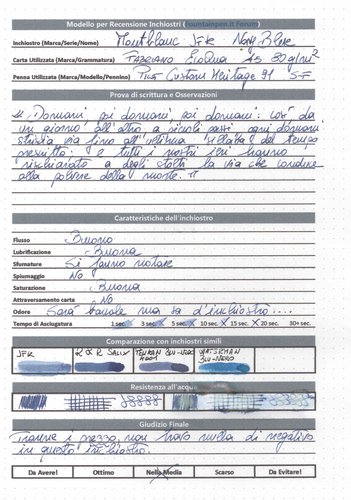 Modello per Recensione Inchiostri (fountainpen.it Forum)
Inchiostro (Marca/Serie/Nome) Montblanc JFK Navy Blue
Carta Utilizzata (Marca/Grammatura) FABRIANO Ecolua A5 80 g/m²
Penna Utilizzata (Marca/Modello/Pennino) Pilot Custom Heritage 91 SF
Prova di scrittura e Osservazioni
"Domani, poi domani, poi domani: così, da
un giorno all'altro, a piccoli passi, ogni domani
striscia via fino all'ultima sillaba del tempo
prescritto; e tutti i nostri ieri hanno
rischiarato a degli stolti la via che conduce
alla polvere della morte."
Caratteristiche dell'inchiostro
Flusso Buono
Lubrificazione Buona
Sfumature Si fanno notare
Spiumaggio No
Saturazione Buona
Attraversamento carta No
Odore Sarà banale ma sa d'inchiostro....
Tempo di Asciugatura 1 sec. 3 sec. 5 sec. 10 sec. 15 sec. 20 sec. 30+ sec.
Comparazione con inchiostri similI
JFK R&R SALIX BLU-NERO WATERMAN BLU-NERO
Resistenza all'acqua
Giudizio Finale
Tranne il prezzo, non trovo nulla di negativo
in questo inchiostro.
Da Avere! Ottimo Nella Media Scarso Da Evitare!